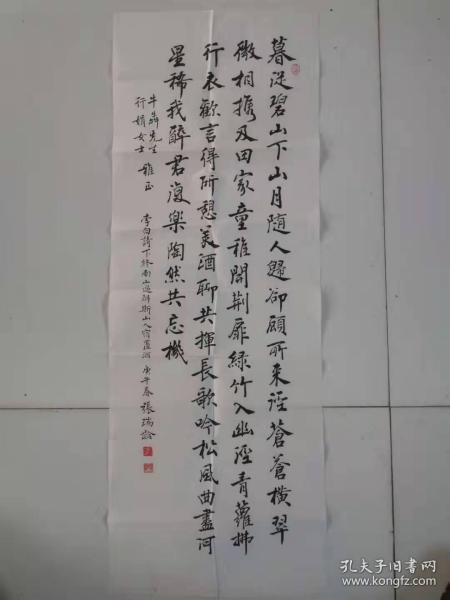 暮從碧山下山月隨人歸卻顧所來徑蒼蒼橫翠
微相携及田家童稚開荆扉綠竹入幽徑青蘿拂
行衣歡言得所憩美酒聊共揮長歌吟松風曲盡河
星稀我醉君復樂陶然共忘機
牛犇先生
行娟女士 雅正
李白詩下終南山過斛斯山人宿置酒 庚午春 張瑞齡
孔夫子旧书网
www.kongfz.com